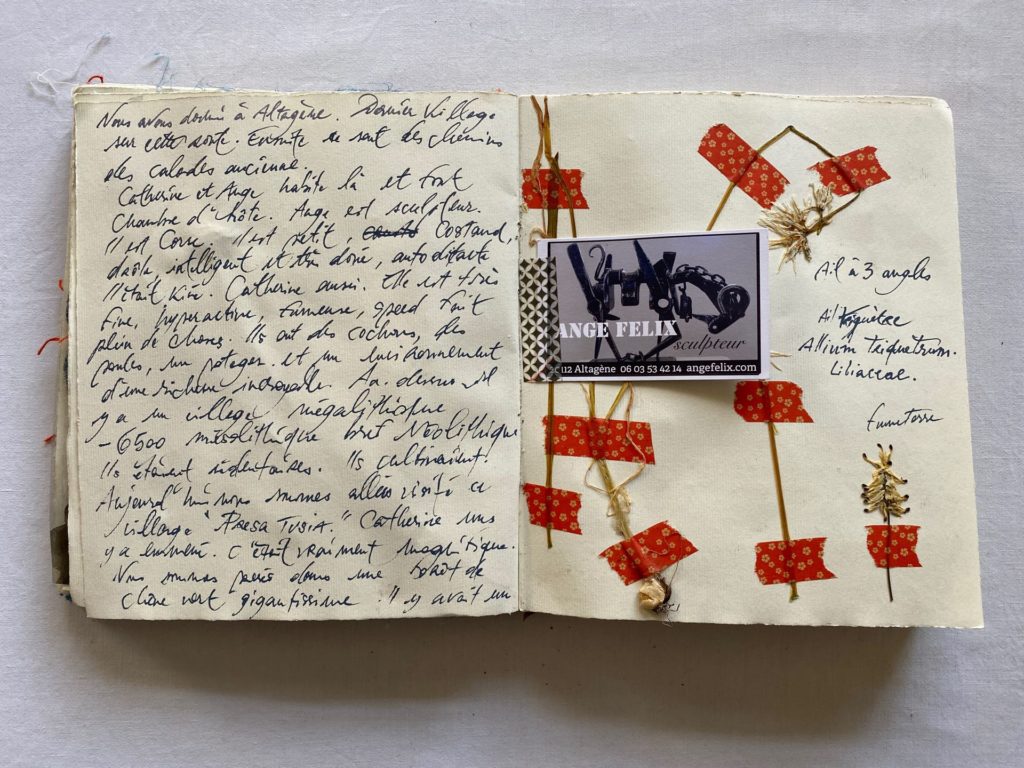 Nous avons dormi à Altagène. Dernier village
sur cette route. Ensuite ce sont des chemins
des calades ancienne.
Catherine et Ange habite là et font
Chambre d'hôte. Ange est sculpteur.
Il est Corse. Il est petit, Costaud,
drole, intelligent et très doux, autodidacte
Il était Kiné. Catherine aussi. Elle est très
fine, hyperactive, fumeuse, speed fait
plein de choses. Ils ont des cochons, des
poules, un potager et un environnement
d'une richesse incroyable. Au dessus il
y a un village mégalithique
- 6500 mésolithique bref Néolithique
Ils étaient sédentaires. Ils cultivaient.
Aujourd'hui nous sommes allées visité ce
village "Paesa Tusia." Catherine nous
y a emmené. C'était vraiment magnifique.
Nous sommes passés dans une forêt de
chêne vert gigantissime. Il y avait un
ANGE FELIX
sculpteur
112 Altagène 06 03 53 42 14 angefelix.com
Ail à 3 angles
Ail triquètre
Allium triquetrum.
Liliaceae.
Fumeterre